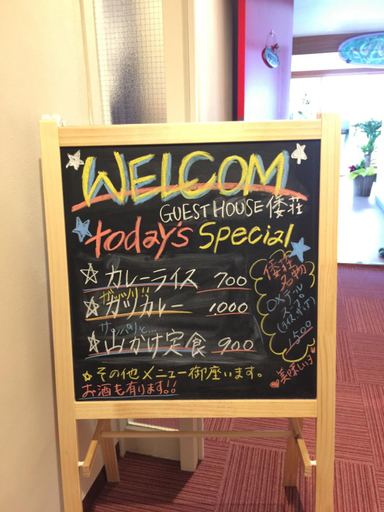 WELCOM
GUEST HOUSE 倭荘
today's Special
☆カレーライス 700
ガッツリ!!
☆カツカレー 1000
サッパリと…
☆山かけ定食 900
☆その他メニュー御座います。
お酒も有ります!!
倭荘
名物
OXテール
1500
美味しいョ